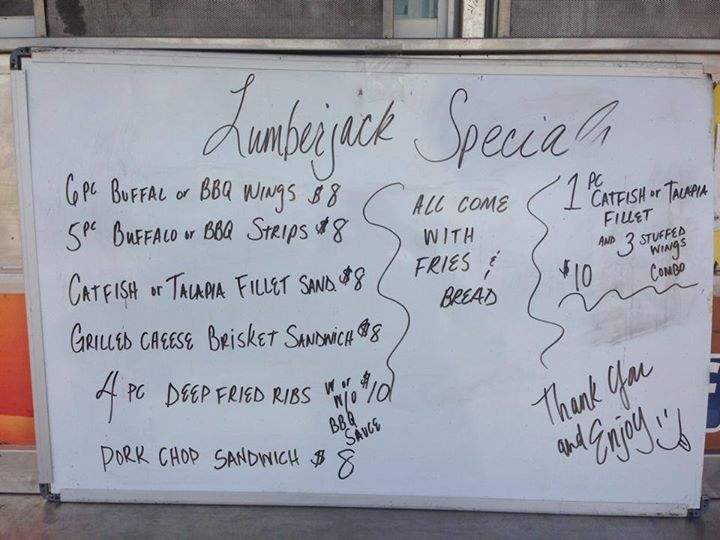 Lumberjack Specials
6 PC BUFFAL or BBQ WINGS $8
5 PC BUFFALO or BBQ STRIPS $8
CATFISH or TALAPIA FILLET SAND $8
GRILLED CHEESE BRISKET SANDWICH $8
4 PC DEEP FRIED RIBS W or W/O BBQ SAUCE $10
PORK CHOP SANDWICH $8
ALL COME
WITH
FRIES &
BREAD
1 PC CATFISH or TALAPIA
FILLET
AND 3 STUFFED
WINGS
$10 COMBO
Thank You
and Enjoy!!